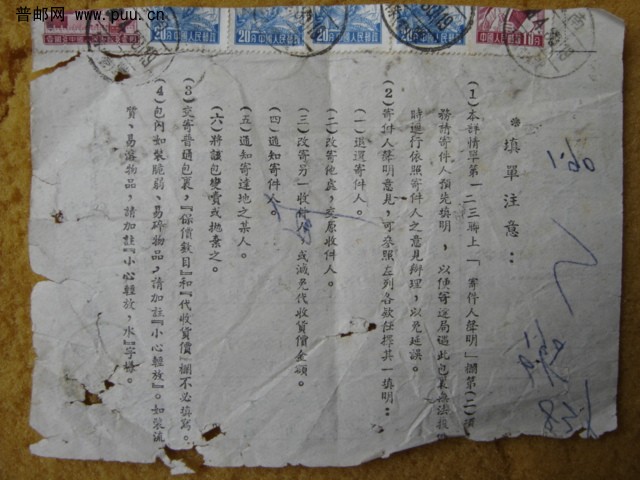 普邮网 www.puu.cn
20分 中國人民郵政
20分 中國人民郵政
20分 中國人民郵政
20分 中國人民郵政
中國人民郵政 10分
填單注意：
(1)本詳情單第一二三聯上「寄件人聲明」欄第(二)項
務請寄件人預先填明，以便寄達局遇此包裹無法投遞
時逕行依照寄件人之意見辦理，以免延誤。
(2)寄件人聲明意見，可參照左列各款任擇其一填明：
(一)退還寄件人。
(二)改寄他處，交原收件人。
(三)改寄另一收件人，或減免代收貨價金額。
(四)通知寄件人。
(五)通知寄達地之某人。
(六)將該包變賣或拋棄之。
(3)交寄普通包裹，『保價數目』和『代收貨價』欄不必填寫。
(4)包內如裝脆弱、易碎物品，請加註『小心輕放』。如裝流
質、易溶物品，請加註『小心輕放，水』字樣。